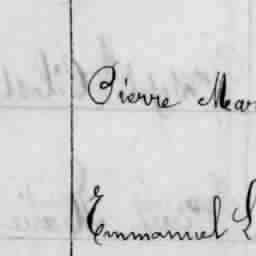 Pierre Mar
Emmanuel L